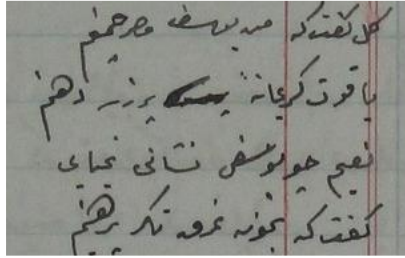 گل گفت که من یوسف مصر چمنم
یاقوت گرانمایه پر زر دهنم
گفتم چو یوسفی نشانی بنمای
گفت که بخون غرق نگر پرهنم